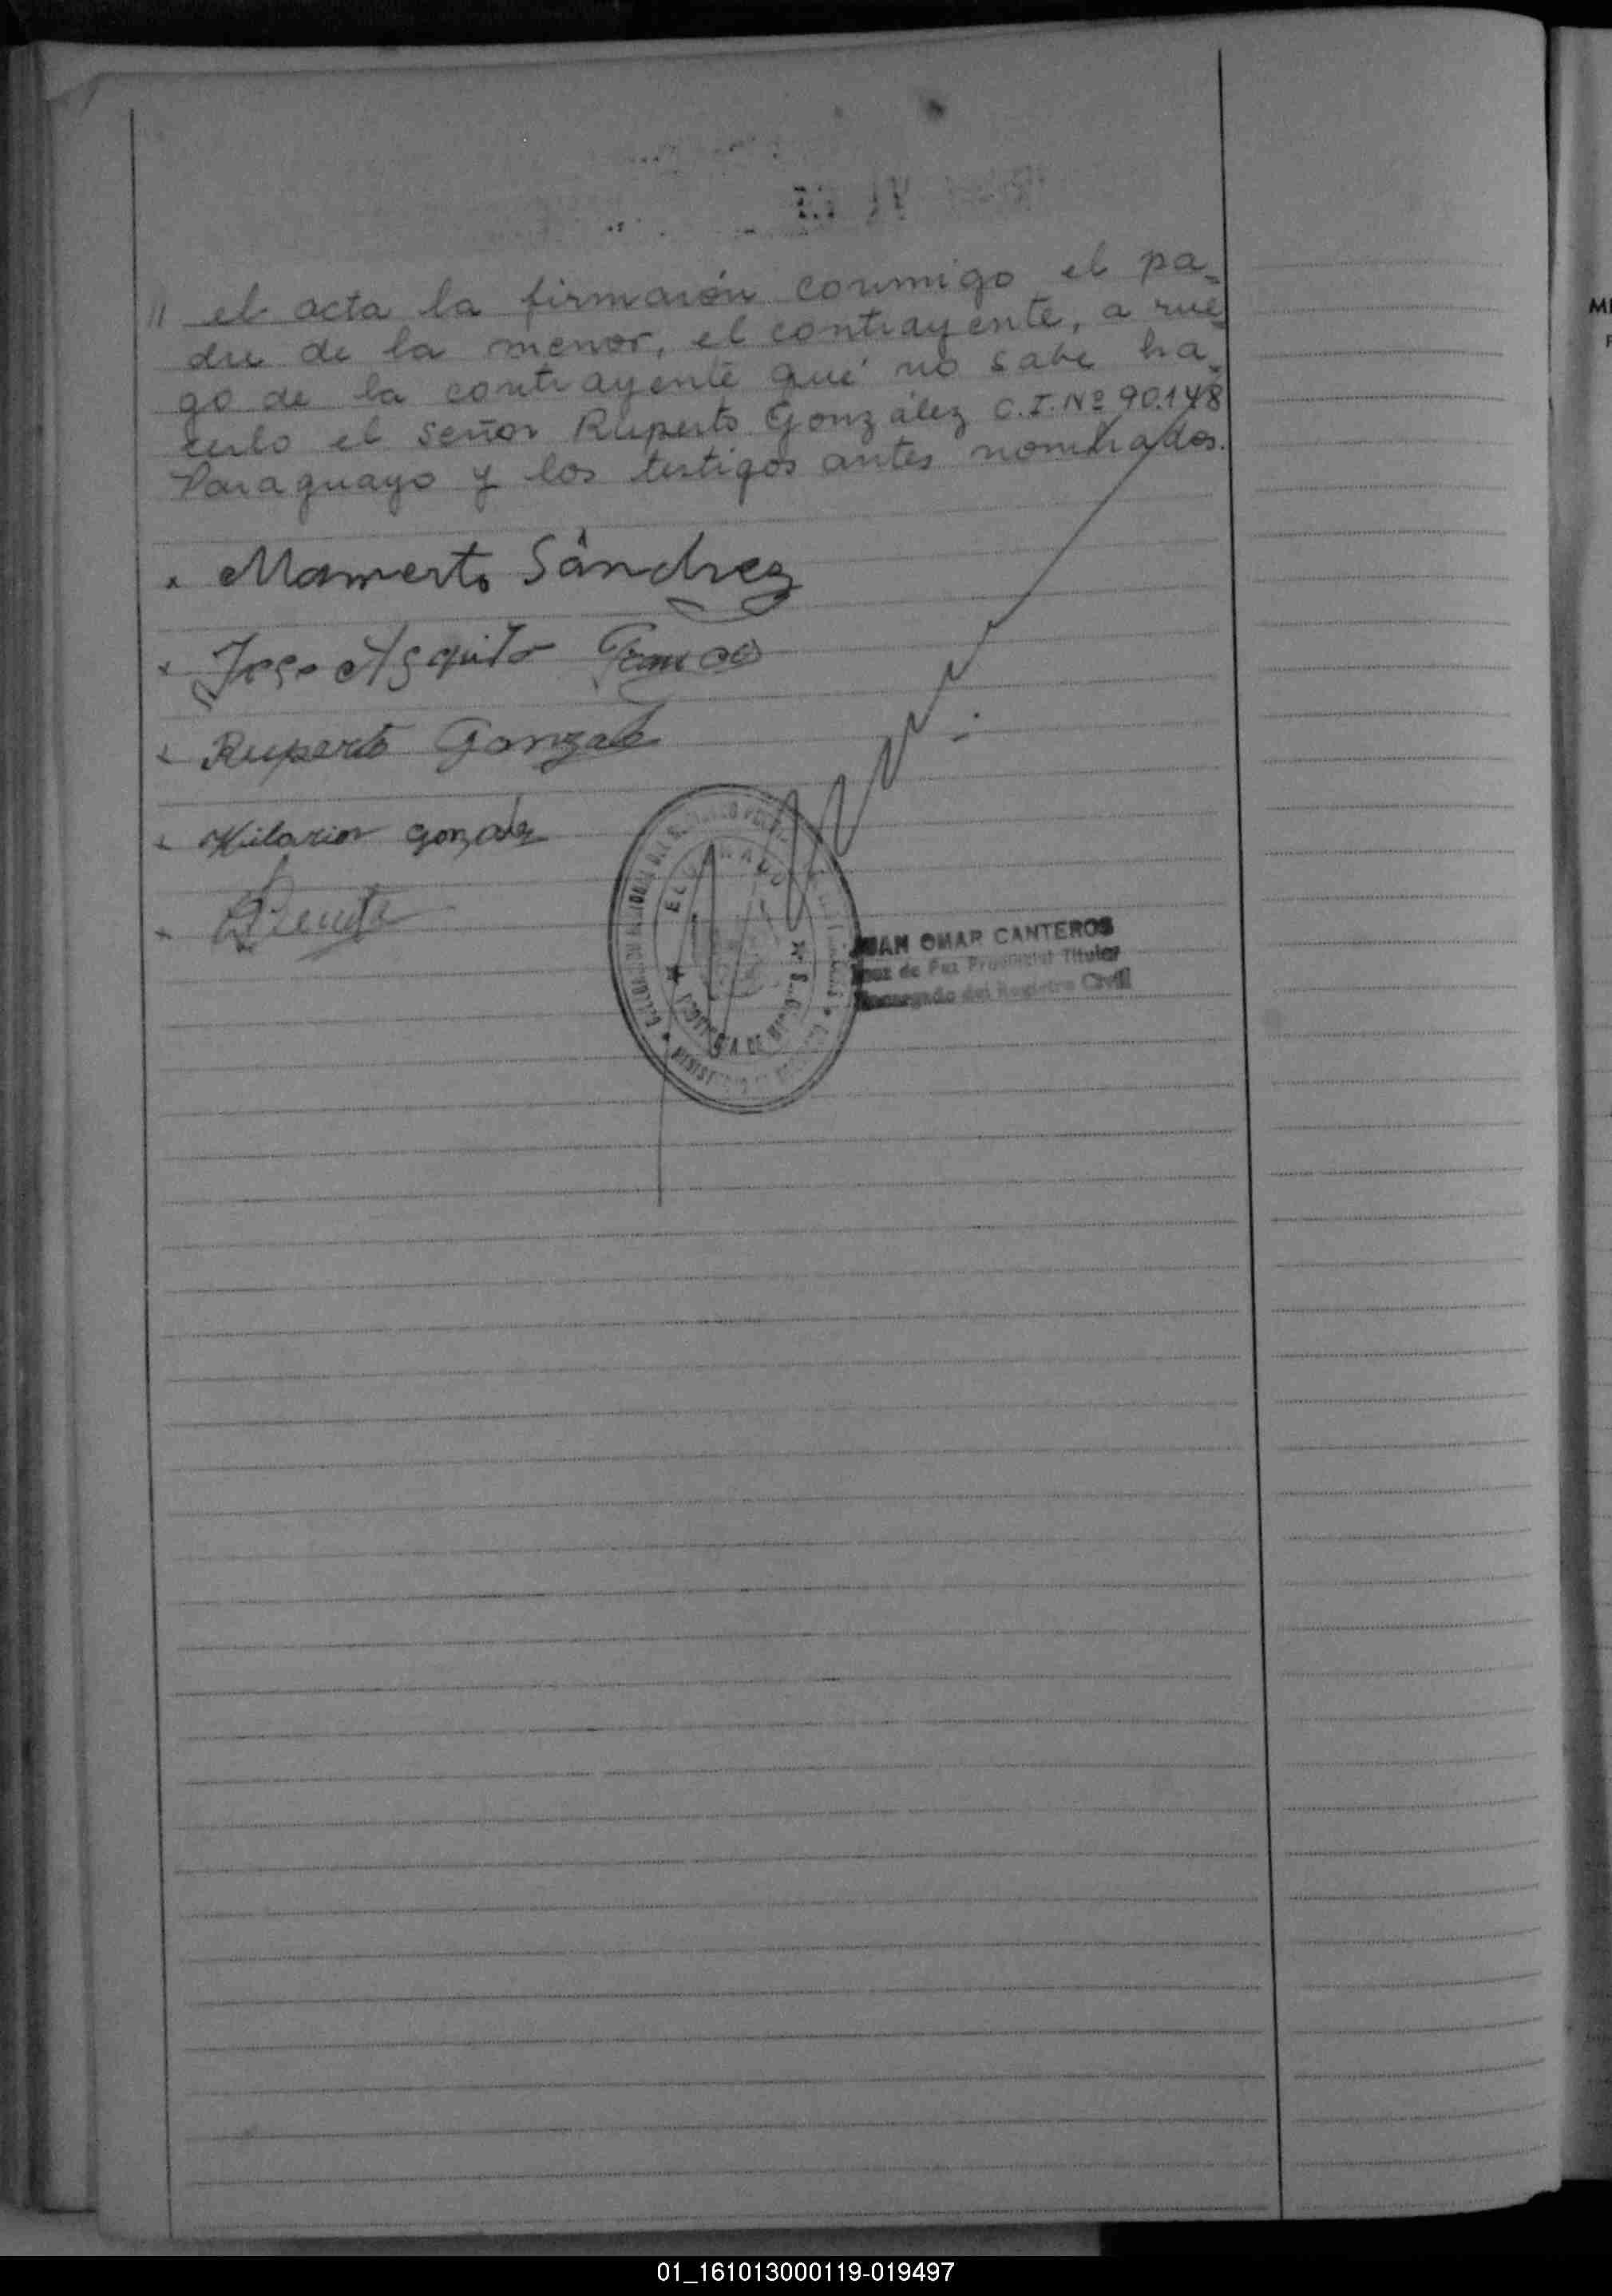 // el acta la firmaron conmigo el pa=
dre de la menor, el contrayente, a rue=
go de la contrayente que no sabe ha=
cerlo el señor Ruperto González C.I. Nº 90.148
Paraguayo y los testigos antes nombrados.
x Mamerto Sánchez
x
x Ruperto Gonzalez
x Hilarion gonzalez
x
ELDORADO
PROVINCIA DE
JUAN OMAR CANTEROS
Juez de Paz Provincial Titular
Encargado del Registro Civil
01_161013000119-019497